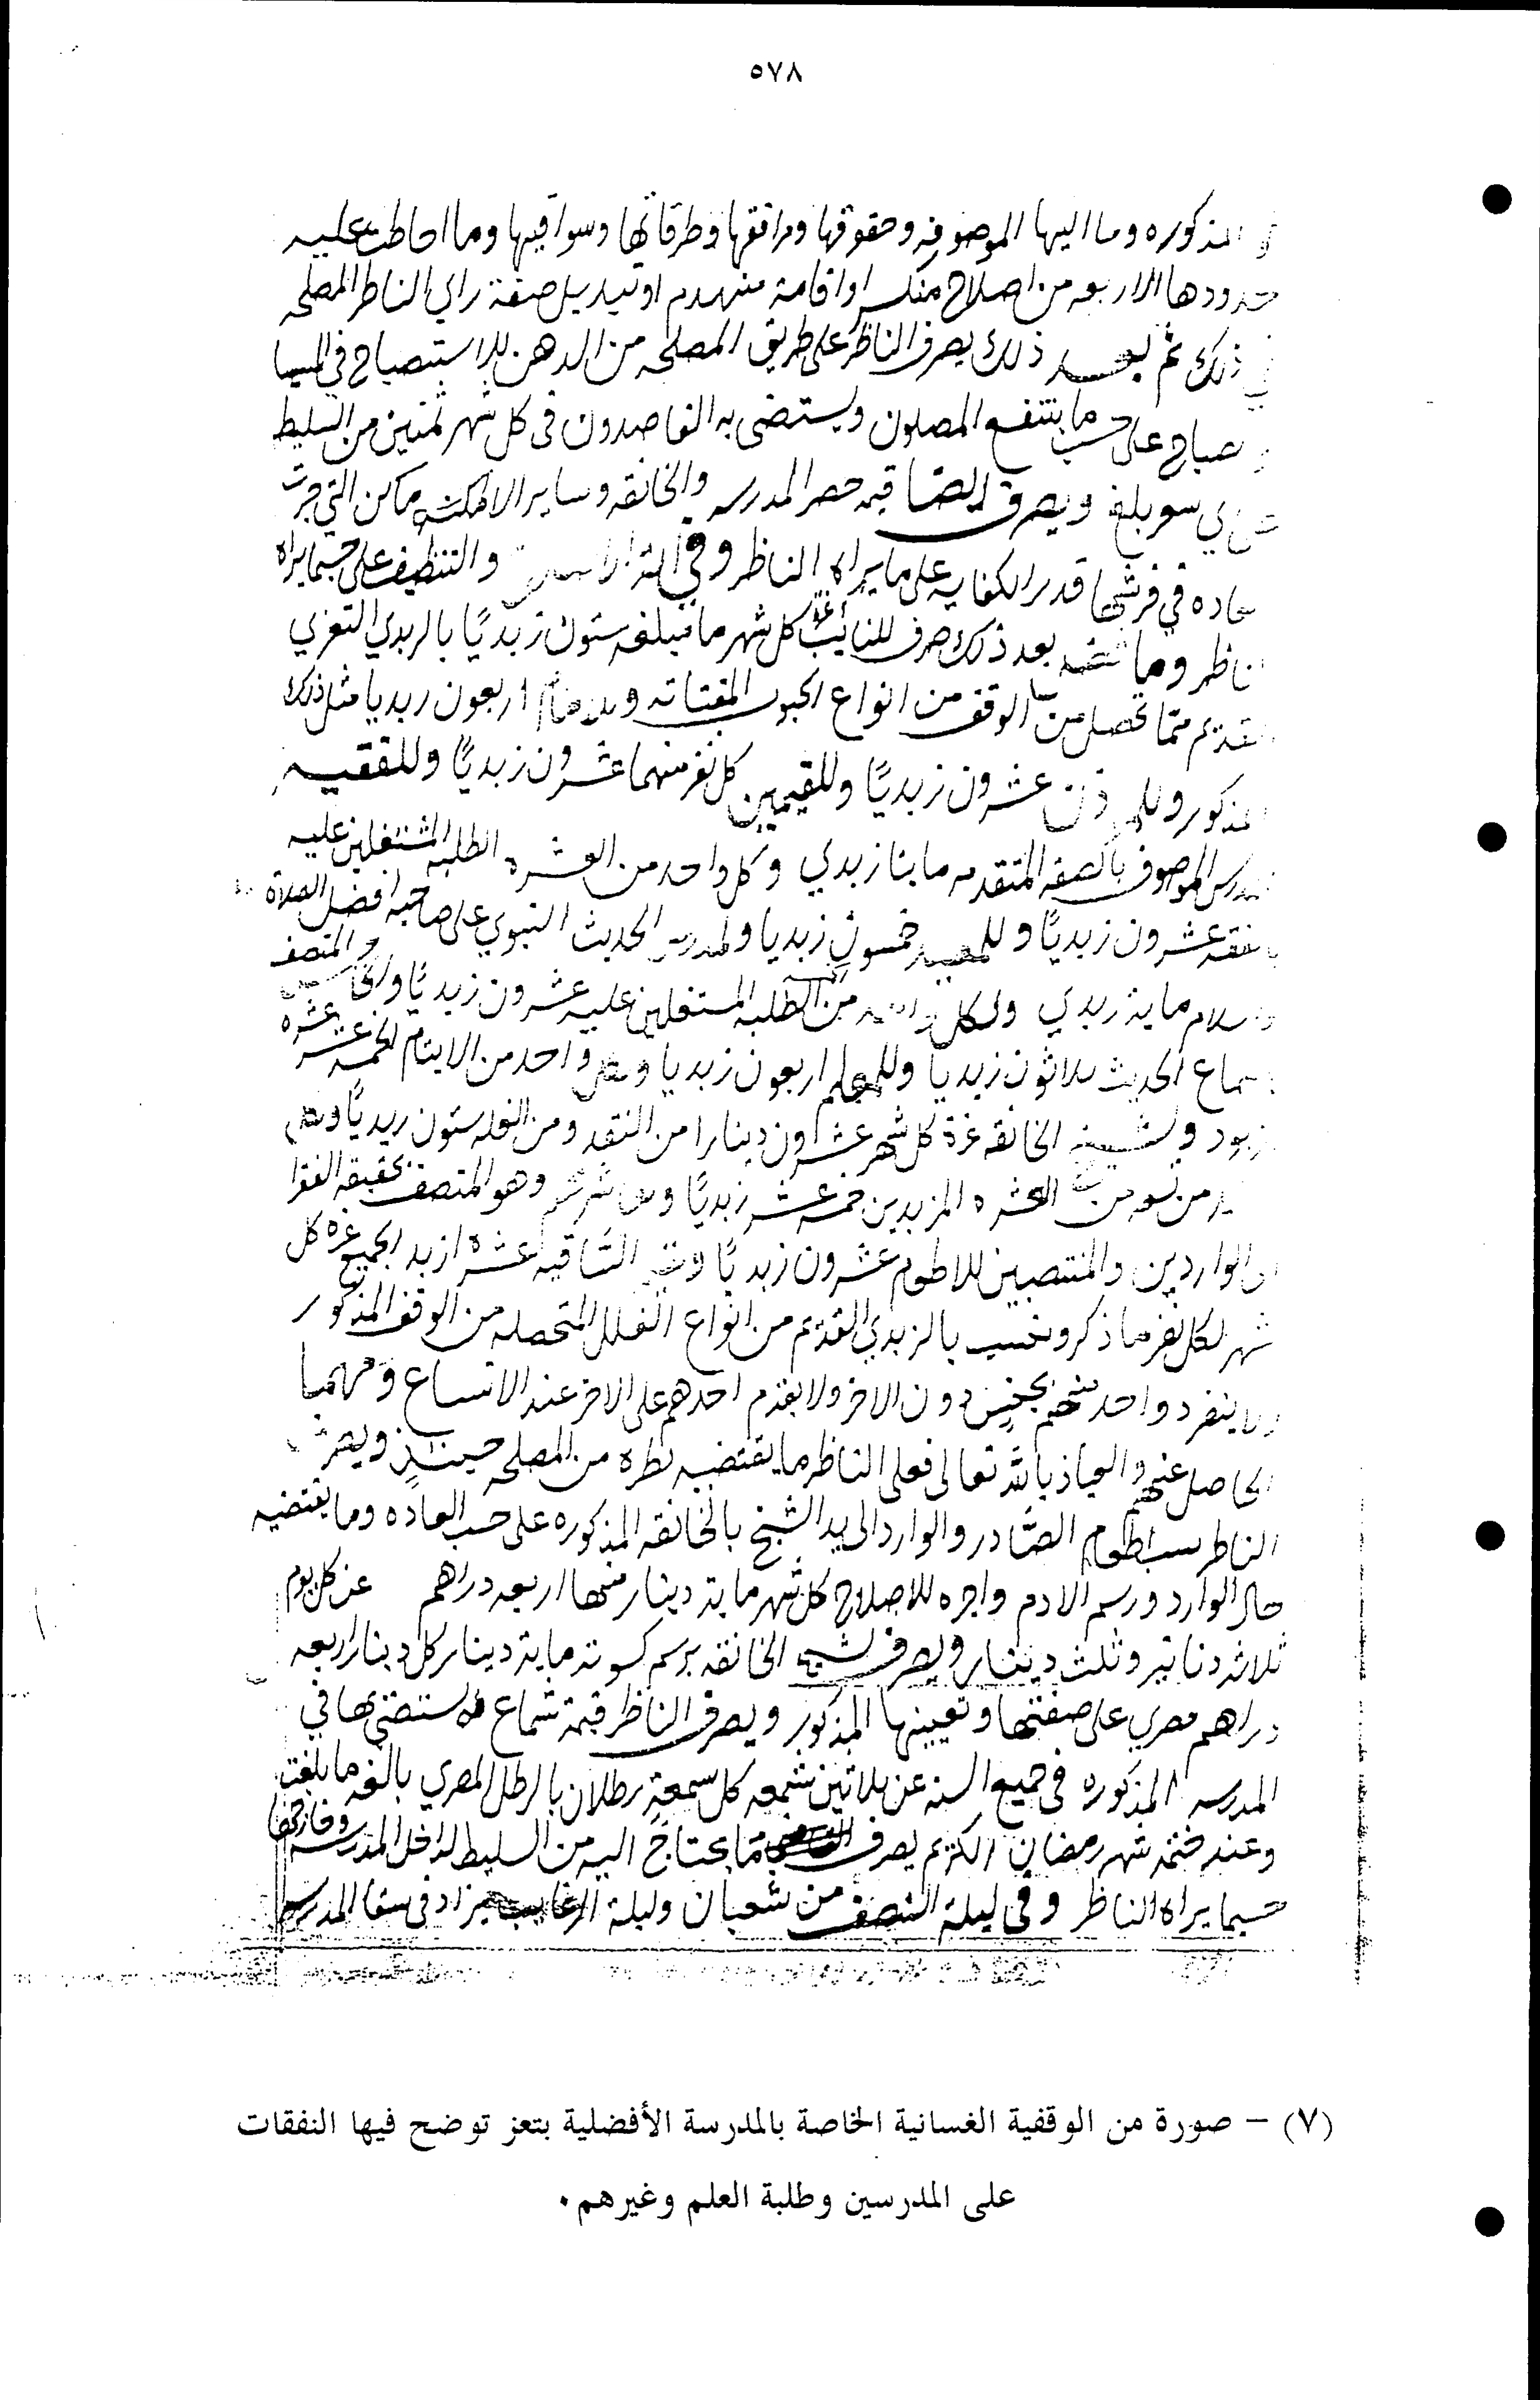 ٥٧٨
المذكوره وما اليها الموصوفه وحقوقها ومرافقها وطرقاتها وسواقيها وما احاطت عليه
حدودها الاربعه من اصلاح منكسر او اقامة منهدم او تبديل صفة راي الناظر المصلحه
ذلك ثم بعد ذلك يصرف الناظر على طريق المصلحه من الدهن للاستصباح في المسا
صباح على حسب ما ينتفع المصلون ويستضى به القاصدون في كل شهر ثمنين من السليط
ويصرف ايضا قيمه حصر المدرسه والخانقه وساير الاماكن التي جرت
عاده في فرشها قدر الكفايه على ما يراه الناظر وفي والتنظيف على حسبما يراه
ناظر وما بعد ذلك صرف للنائب غرة كل شهر ما مبلغه ستون زبديًا بالزبدي التعزي
مما تحصل من الوقف من انواع الحبوب المقتاته اربعون زبديا مثل ذلك
المذكور عشرون زبديًا وللقيمين كل نفر منهما عشرون زبديًا وللفقيه
المدرس الموصوف بالصفه المتقدمه مايتا زبدي وكل واحد من العشره الطلبه المشتغلين عليه
بالفقه عشرون زبديًا وللمعيد خمسون زبديا ولمدرس الحديث النبوي على صاحبه افضل الصلاة
السلام ماية زبدي ولكل من الطلبه المشتغلين عليه عشرون زبديًا والمتصف
سماع الحديث ثلاثون زبديا وللمعلم اربعون زبديا واحد من الايتام الخمسه عشر عشره
زبود ولشيخ الخانقه غرة كل شهر عشرون دينارا من النقد ومن الغله ستون زبديًا
من العشره المزيدين خمسه عشر زبديًا وهو المتصف بحقيقه الفقرا
الواردين والمنتصبين للاطعام عشرون زبديًا السَّاقيه عشرة ازبد الجميع غره كل
شهر لكل نفر ما ذكر ونسب بالزبدي القديم من انواع الغلل المتحصله من الوقف المذكور
ولا ينفرد واحد منهم بجنس دون الاخر ولا يقدم احدهم على الاخر عند الاتساع ومهما
الحاصل عنهم والعياذ بالله تعالى فعلى الناظر ما يقتضيه نظره من المصلحه حينئذٍ ويصرف
الناظر بسبب اطعام الصَّادر والوارد الى يد الشيخ بالخانقه المذكوره على حسب العاده وما يقتضيه
حال الوارد ورسم الادم واجره للاصلاح كل شهر ماية دينار منها اربعه دراهم عن كل يوم
ثلاثه دنانير وثلث دينار ويصرف لشيخ الخانقه برسم كسوته ماية دينار كل دينار اربعه
دراهم مصري على صفتها وتعيينها المذكور ويصرف الناظر قيمة شماع يستضى بها في
المدرسه المذكوره في جميع السنه عن ثلاثين شمعه كل شمعةٍ رطلان بالرطل المصري بالغه ما بلغت
وعند ختمه شهر رمضان الكريم يصرف ما يحتاج اليه من السليط لداخل المدرسه وخارجها
حسبما يراه الناظر وفي ليلة النصف من شعبان وليلة الرغايب يزاد في سقا المدرسه
(٧) – صورة من الوقفية الغسانية الخاصة بالمدرسة الأفضلية بتعز توضح فيها النفقات
على المدرسين وطلبة العلم وغيرهم.